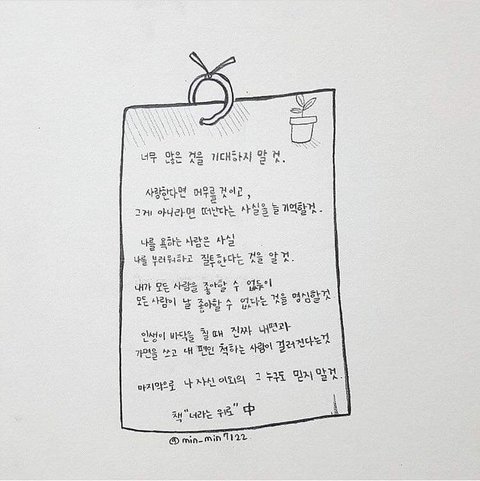 너무 많은 것을 기대하지 말 것.
사랑한다면 머무를 것이고,
그게 아니라면 떠난다는 사실을 늘 기억할것.
나를 욕하는 사람은 사실
나를 부러워하고 질투한다는 것을 알 것.
내가 모든 사람을 좋아할 수 없듯이
모든 사람이 날 좋아할 수 없다는 것을 명심할것
인생이 바닥을 칠 때 진짜 내편과
가면을 쓰고 내 편인 척하는 사람이 걸러진다는것
마지막으로 나 자신 이외의 그 누구도 믿지 말것.
책 "너라는 위로" 中
@min_min7122.